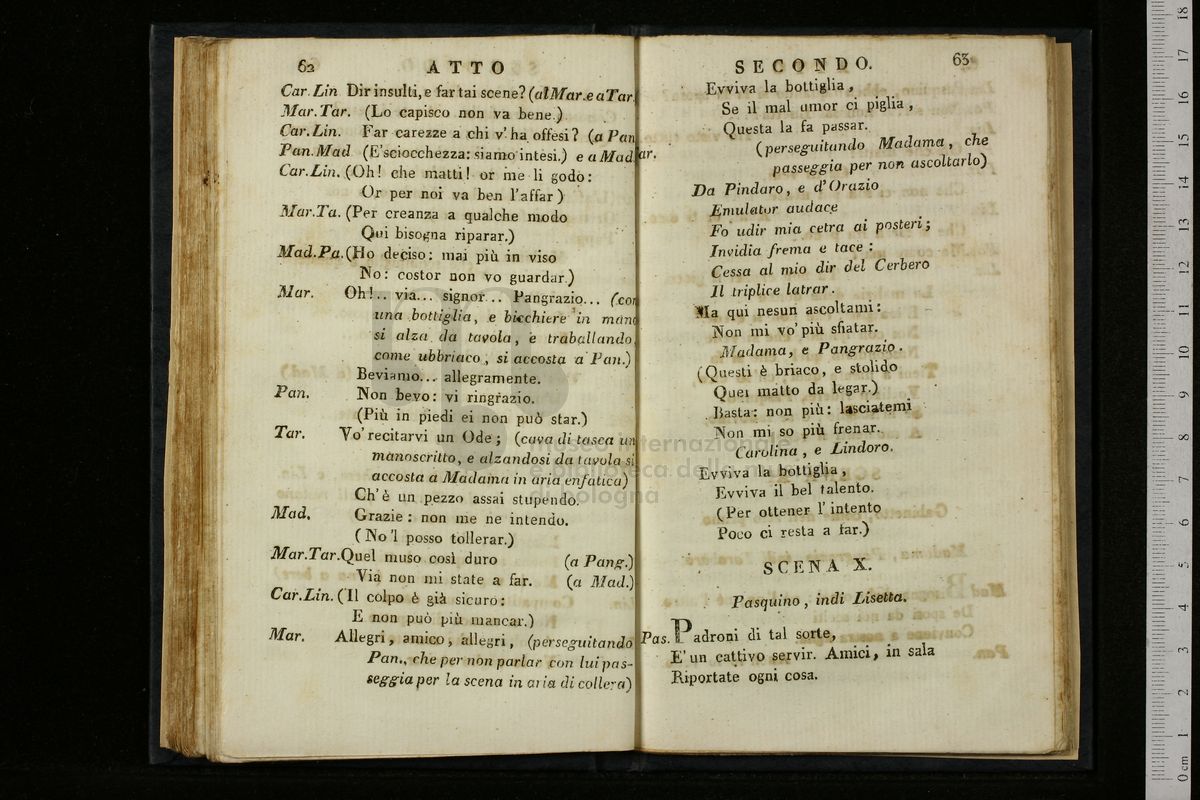 62 ATTO
Car. Lin. Dir insulti, e far tai scene? (al Mar. e a Tar.
Mar. Tar. (Lo capisco non va bene.)
Car. Lin. Far carezze a chi v' ha offesi? (a Pan
Pan. Mad (E' sciocchezza: siamo intesi.) e a Mad.
Car. Lin. (Oh! che matti! or me li godo:
Or per noi va ben l'affar)
Mar. Ta. (Per creanza a qualche modo
Qui bisogna riparar.)
Mad. Pa. (Ho deciso: mai più in viso
No: costor non vo guardar.)
Mar. Oh!.. via... signor... Pangrazio... (con
una bottiglia, e bicchiere in mano
si alza da tavola, e traballando,
come ubbriaco, si accosta a Pan.)
Beviamo... allegramente.
Pan. Non bevo: vi ringrazio.
(Più in piedi ei non può star.)
Tar. Vo' recitarvi un Ode; (cava di tasca un
manoscritto, e alzandosi da tavola si
accosta a Madama in aria enfatica)
Ch'è un pezzo assai stupendo.
Mad. Grazie: non me ne intendo.
(No'l posso tollerar.)
Mar. Tar. Quel muso così duro (a Pang.)
Via non mi state a far. (a Mad.)
Car. Lin. (Il colpo è già sicuro:
E non può più mancar.)
Mar. Allegri, amico, allegri, (perseguitando
Pan., che per non parlar con lui pas-
seggia per la scena in aria di collera)
SECONDO. 63
Evviva la bottiglia,
Se il mal umor ci piglia,
Questa la fa passar.
(perseguitando Madama, che
passeggia per non ascoltarlo)
ar.
Da Pindaro, e d'Orazio
Emulator audace
Fo udir mia cetra ai posteri;
Invidia frema e tace:
Cessa al mio dir del Cerbero
Il triplice latrar.
Ma qui nesun ascoltami:
Non mi vo' più sfiatar.
Madama, e Pangrazio.
(Questi è briaco, e stolido
Quei matto da legar.)
Basta: non più: lasciatemi
Non mi so più frenar.
Carolina, e Lindoro.
Evviva la bottiglia,
Evviva il bel talento.
(Per ottener l'intento
Poco ci resta a far.)
SCENA X.
Pasquino, indi Lisetta.
Pas. Padroni di tal sorte,
E' un cattivo servir. Amici, in sala
Riportate ogni cosa.